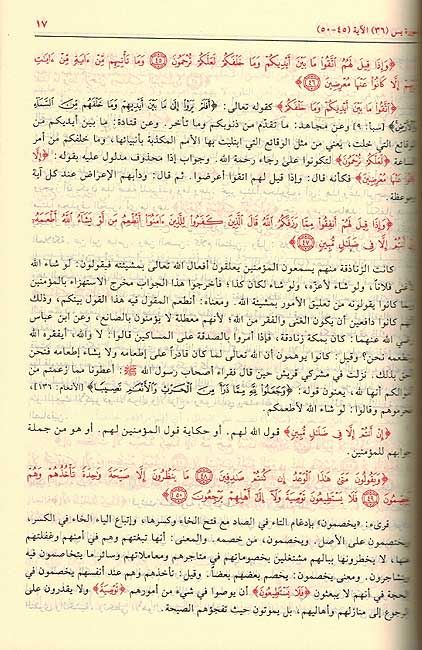 سورة يس (٣٦) الآية (٤٥-٥٠) ١٧
﴿وَإِذَا قِيلَ لَهُمُ اتَّقُوا مَا بَيْنَ أَيْدِيكُمْ وَمَا خَلْفَكُمْ لَعَلَّكُمْ تُرْحَمُونَ ﴿٤٥﴾ وَمَا تَأْتِيهِم مِّنْ ءَايَةٍ مِّنْ ءَايَٰتِ
رَبِّهِمْ إِلَّا كَانُوا عَنْهَا مُعْرِضِينَ ﴿٤٦﴾
﴿اتَّقُوا مَا بَيْنَ أَيْدِيكُمْ وَمَا خَلْفَكُمْ﴾ كقوله تعالى: ﴿أَفَلَمْ يَرَوْا إِلَىٰ مَا بَيْنَ أَيْدِيهِمْ وَمَا خَلْفَهُم مِّنَ السَّمَاءِ
وَالْأَرْضِ﴾ [سبأ: ٩] وعن مجاهد: ما تقدّم من ذنوبكم وما تأخر. وعن قتادة: ما بين أيديكم من
الوقائع التي خلت، يعني من مثل الوقائع التي ابتليت بها الأمم المكذبة بأنبيائها، وما خلفكم من أمر
الساعة ﴿لَعَلَّكُمْ تُرْحَمُونَ﴾ لتكونوا على رجاء رحمة الله. وجواب إذا محذوف مدلول عليه بقوله: ﴿إِلَّا
كَانُوا عَنْهَا مُعْرِضِينَ﴾ فكأنه قال: وإذا قيل لهم اتقوا أعرضوا. ثم قال: ودأبهم الإعراض عند كل آية
وموعظة.
﴿وَإِذَا قِيلَ لَهُمْ أَنفِقُوا مِمَّا رَزَقَكُمُ اللَّهُ قَالَ الَّذِينَ كَفَرُوا لِلَّذِينَ ءَامَنُوا أَنُطْعِمُ مَن لَّوْ يَشَاءُ اللَّهُ أَطْعَمَهُ
إِنْ أَنتُمْ إِلَّا فِي ضَلَٰلٍ مُّبِينٍ ﴿٤٧﴾
كانت الزنادقة منهم يسمعون المؤمنين يعلقون أفعال الله تعالى بمشيئته فيقولون: لو شاء الله
لأغنى فلاناً، ولو شاء لأعزّه، ولو شاء لكان كذا؛ فأخرجوا هذا الجواب مخرج الاستهزاء بالمؤمنين
وبما كانوا يقولونه من تعليق الأمور بمشيئة الله. ومعناه: أنطعم المقول فيه هذا القول بينكم، وذلك
أنهم كانوا دافعين أن يكون الغنى والفقر من الله؛ لأنهم معطلة لا يؤمنون بالصانع، وعن ابن عباس
رضي الله عنهما: كان بمكة زنادقة، فإذا أمروا بالصدقة على المساكين قالوا: لا والله، أيفقره الله
ونطعمه نحن؟ وقيل: كانوا يوهمون أن الله تعالى لما كان قادراً على إطعامه ولا يشاء إطعامه فنحن
أحق بذلك. نزلت في مشركي قريش حين قال فقراء أصحاب رسول الله ﷺ: أعطونا مما زعمتم من
أموالكم أنها لله، يعنون قوله: ﴿وَجَعَلُوا لِلَّهِ مِمَّا ذَرَأَ مِنَ الْحَرْثِ وَالْأَنْعَامِ نَصِيبًا﴾ [الأنعام: ١٣٦]
فحرموهم وقالوا: لو شاء الله لأطعمكم.
﴿إِنْ أَنتُمْ إِلَّا فِي ضَلَٰلٍ مُّبِينٍ﴾ قول الله لهم. أو حكاية قول المؤمنين لهم. أو هو من جملة
جوابهم للمؤمنين.
﴿وَيَقُولُونَ مَتَىٰ هَٰذَا الْوَعْدُ إِن كُنتُمْ صَٰدِقِينَ ﴿٤٨﴾ مَا يَنظُرُونَ إِلَّا صَيْحَةً وَٰحِدَةً تَأْخُذُهُمْ وَهُمْ
يَخِصِّمُونَ ﴿٤٩﴾ فَلَا يَسْتَطِيعُونَ تَوْصِيَةً وَلَا إِلَىٰ أَهْلِهِمْ يَرْجِعُونَ ﴿٥٠﴾
قرىء: «يخصمون» بإدغام التاء في الصاد مع فتح الخاء وكسرها، وإتباع الياء الخاء في الكسر،
ويختصمون على الأصل. ويخصمون، من خصمه. والمعنى: أنها تبغتهم وهم في أمنهم وغفلتهم
عنها، لا يخطرونها ببالهم مشتغلين بخصوماتهم في متاجرهم ومعاملاتهم وسائر ما يتخاصمون فيه
ويتشاجرون. ومعنى يخصمون: يخصم بعضهم بعضاً. وقيل: تأخذهم وهم عند أنفسهم يخصمون في
الحجة في أنهم لا يبعثون ﴿فَلَا يَسْتَطِيعُونَ﴾ أن يوصوا في شيء من أمورهم ﴿تَوْصِيَةً﴾ ولا يقدرون على
الرجوع إلى منازلهم وأهاليهم، بل يموتون حيث تفجؤهم الصيحة.